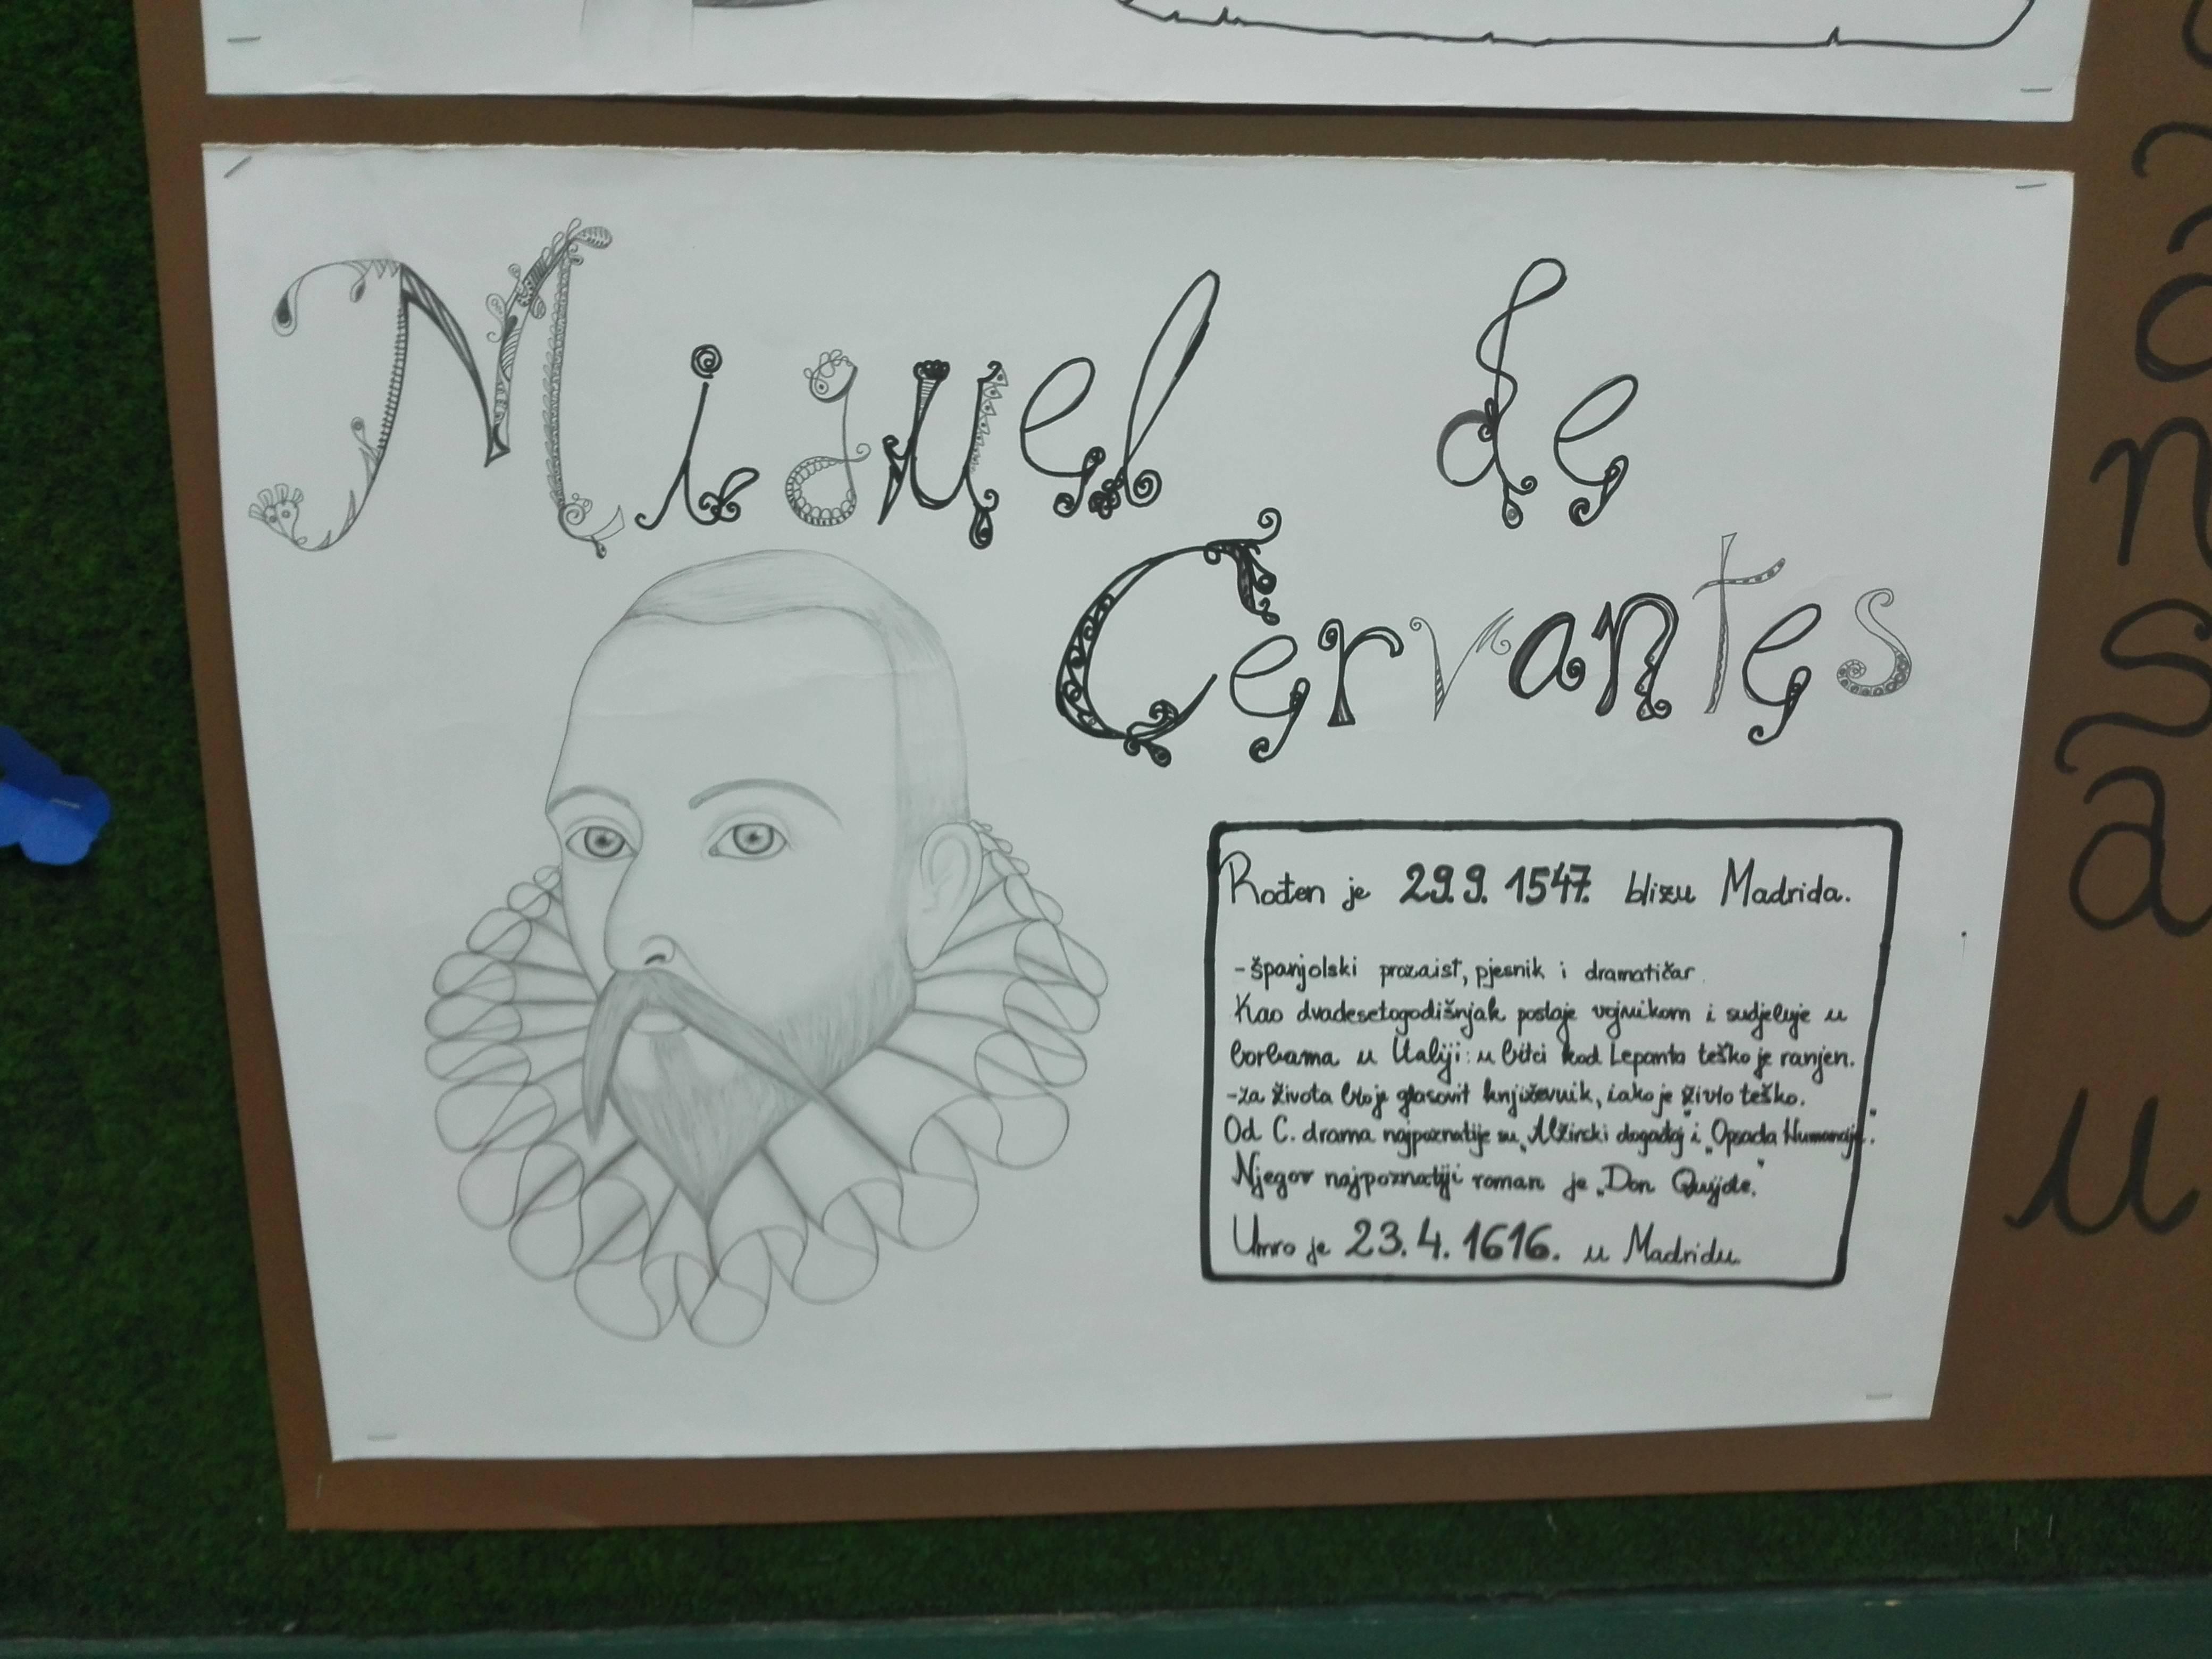 Miguel de
Cervantes
Rođen je 29.9. 1547. blizu Madrida.
-španjolski prozaist, pjesnik i dramatičar.
Kao dvadesetogodišnjak postaje vojnikom i sudjeluje u
borbama u Italiji: u bitci kod Lepanta teško je ranjen.
-za života bio je glasovit književnik, iako je živio teško.
Od C. drama najpoznatije su „Alžirski događaj" i „Opsada
Njegov najpoznatiji roman je „Don Quijote."
Umro je 23.4.1616. u Madridu.
a
n
s
a
u